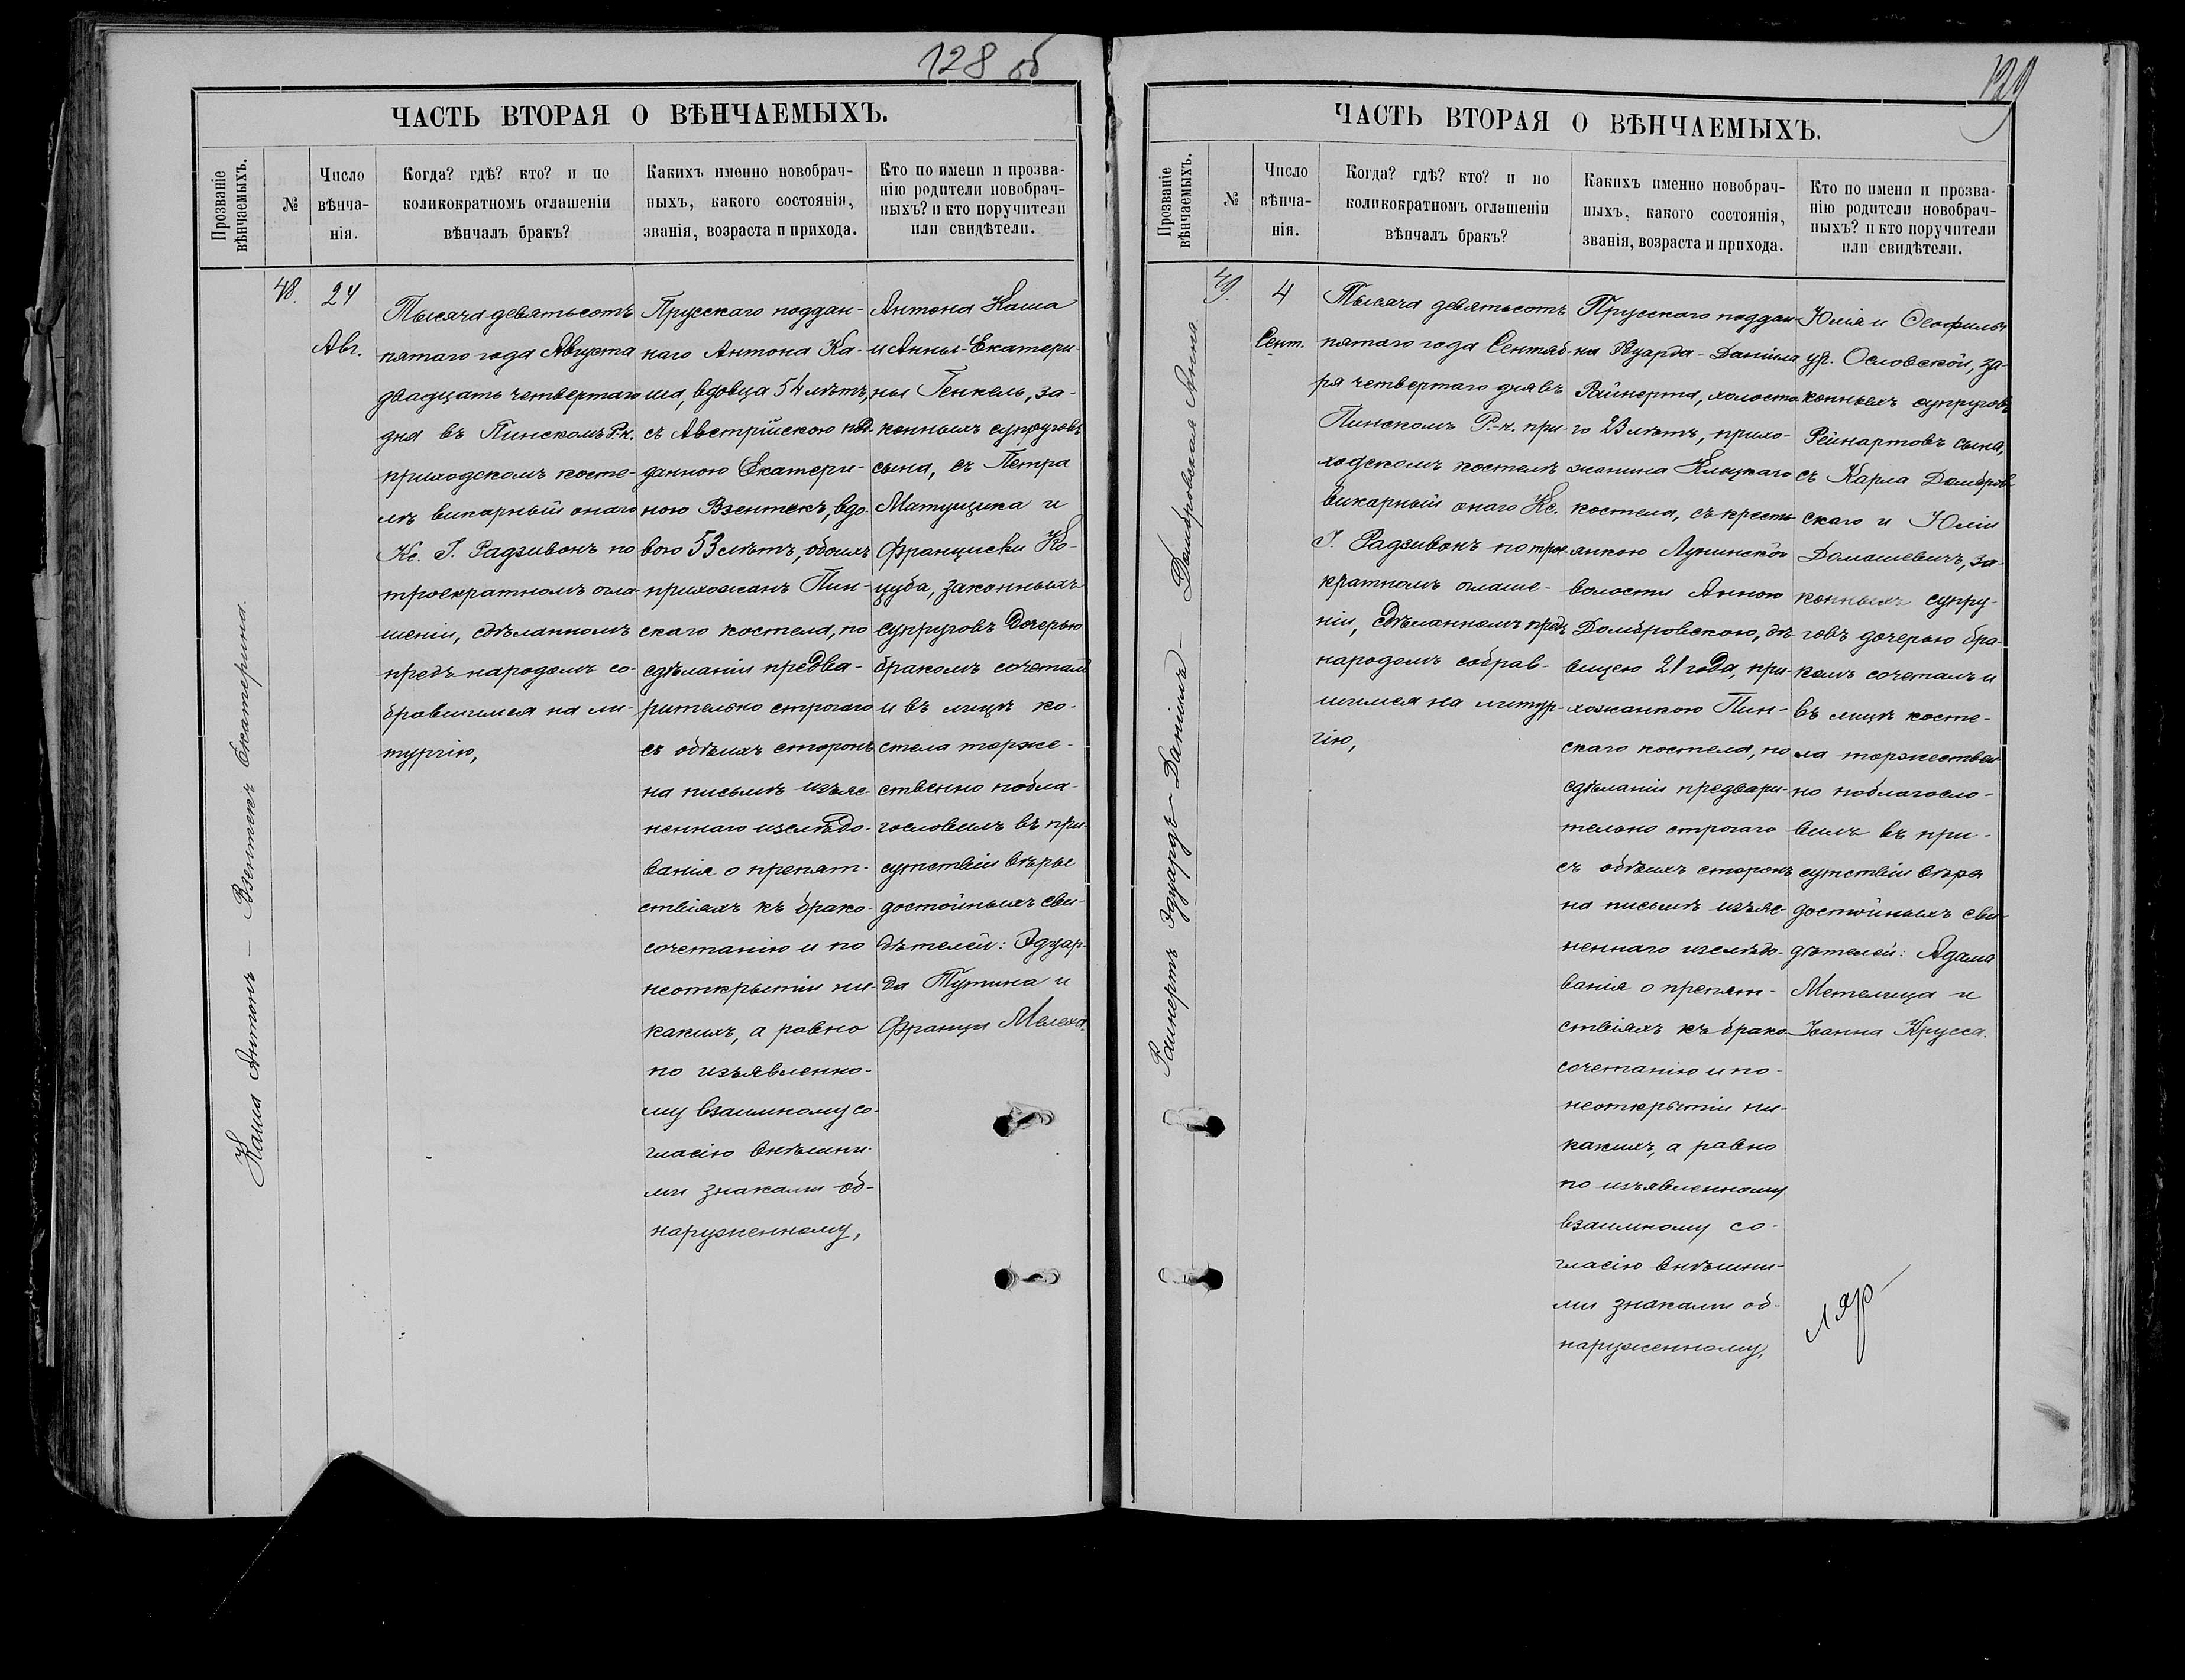 128 об
ЧАСТЬ ВТОРАЯ О ВѢНЧАЕМЫХЪ.
Прозваніе
вѣнчаемыхъ.
№
Число
вѣнча-
нія.
Когда? гдѣ? кто? и по
коликократномъ оглашеніи
вѣнчалъ бракъ?
Какихъ именно новобрач-
ныхъ, какого состоянія,
званія, возраста и прихода.
Кто по имени и прозва-
нію родители новобрач-
ныхъ? и кто поручители
или свидѣтели.
Каша Антонъ — Взентекъ Екатерина.
48.
24
Авг.
Тысяча девятьсотъ
пятаго года Августа
двадцать четвертаго
дня въ Пинскомъ Р.-к.
приходскомъ косте-
лѣ викарный онаго
Кс. І. Радзивонъ по
троекратномъ огла-
шеніи, сдѣланномъ
предъ народомъ со-
бравшимся на ли-
тургію,
Прусскаго поддан-
наго Антона Ка-
ша, вдовца 54 лѣтъ,
съ Австрійскою под-
данною Екатери-
ною Взентекъ, вдо-
вою 53 лѣтъ, обоихъ
прихожанъ Пин-
скаго костела, по
сдѣланіи предва-
рительно строгаго
съ обѣихъ сторонъ
на письмѣ изъяс-
неннаго изслѣдо-
ванія о препят-
ствіяхъ къ брако-
сочетанію и по
неоткрытіи ни-
какихъ, а равно
по изъявленно-
му взаимному со-
гласію внѣшни-
ми знаками об-
наруженному,
Антона Каша
и Анны-Екатери-
ны Генкель, за-
конныхъ супруговъ
сына, съ Петра
Матущика и
Франциски Ко-
цуба, законныхъ
супруговъ дочерью
бракомъ сочеталъ
и въ лицѣ ко-
стела торже-
ственно побла-
гословилъ въ при-
сутствіи вѣры
достойныхъ сви-
дѣтелей: Эдуар-
да Тутина и
Франца Мелеха.
129
ЧАСТЬ ВТОРАЯ О ВѢНЧАЕМЫХЪ.
Прозваніе
вѣнчаемыхъ.
№
Число
вѣнча-
нія.
Когда? гдѣ? кто? и по
коликократномъ оглашеніи
вѣнчалъ бракъ?
Какихъ именно новобрач-
ныхъ, какого состоянія,
званія, возраста и прихода.
Кто по имени и прозва-
нію родители новобрач-
ныхъ? и кто поручители
или свидѣтели.
Райнертъ Эдуардъ-Даніилъ — Домбровская Анна.
49.
4
Сент.
Тысяча девятьсотъ
пятаго года Сентяб-
ря четвертаго дня въ
Пинскомъ Р.-к. при-
ходскомъ костелѣ
викарный онаго Кс.
І. Радзивонъ по трое-
кратномъ оглаше-
ніи, сдѣланномъ предъ
народомъ собрав-
шимся на литур-
гію,
Прусскаго поддан-
на Эдуарда-Даніила
Райнерта, холоста-
го 23 лѣтъ, прихо-
жанина Клецкаго
костела, съ кресть-
янкою Лунинской
волости Анною
Домбровскою, дѣ-
вицею 21 года, при-
хожанкою Пин-
скаго костела, по
сдѣланіи предвари-
тельно строгаго
съ обѣихъ сторонъ
на письмѣ изъяс-
неннаго изслѣдо-
ванія о препят-
ствіяхъ къ брако-
сочетанію и по-
неоткрытіи ни-
какихъ, а равно
по изъявленному
взаимному со-
гласію внѣшни-
ми знаками об-
наруженному,
Юлія и Ѳеофилы
ур. Ословской, за-
конныхъ супруговъ
Рейнартовъ сына,
съ Карла Домбров-
скаго и Юліи
Домашевичъ, за-
конныхъ супру-
говъ дочерью бра-
комъ сочеталъ и
въ лицѣ косте-
ла торжествен-
но поблагосло-
вилъ въ при-
сутствіи вѣра
достойныхъ сви-
дѣтелей: Адама
Метелица и
Іоанна Крусса.